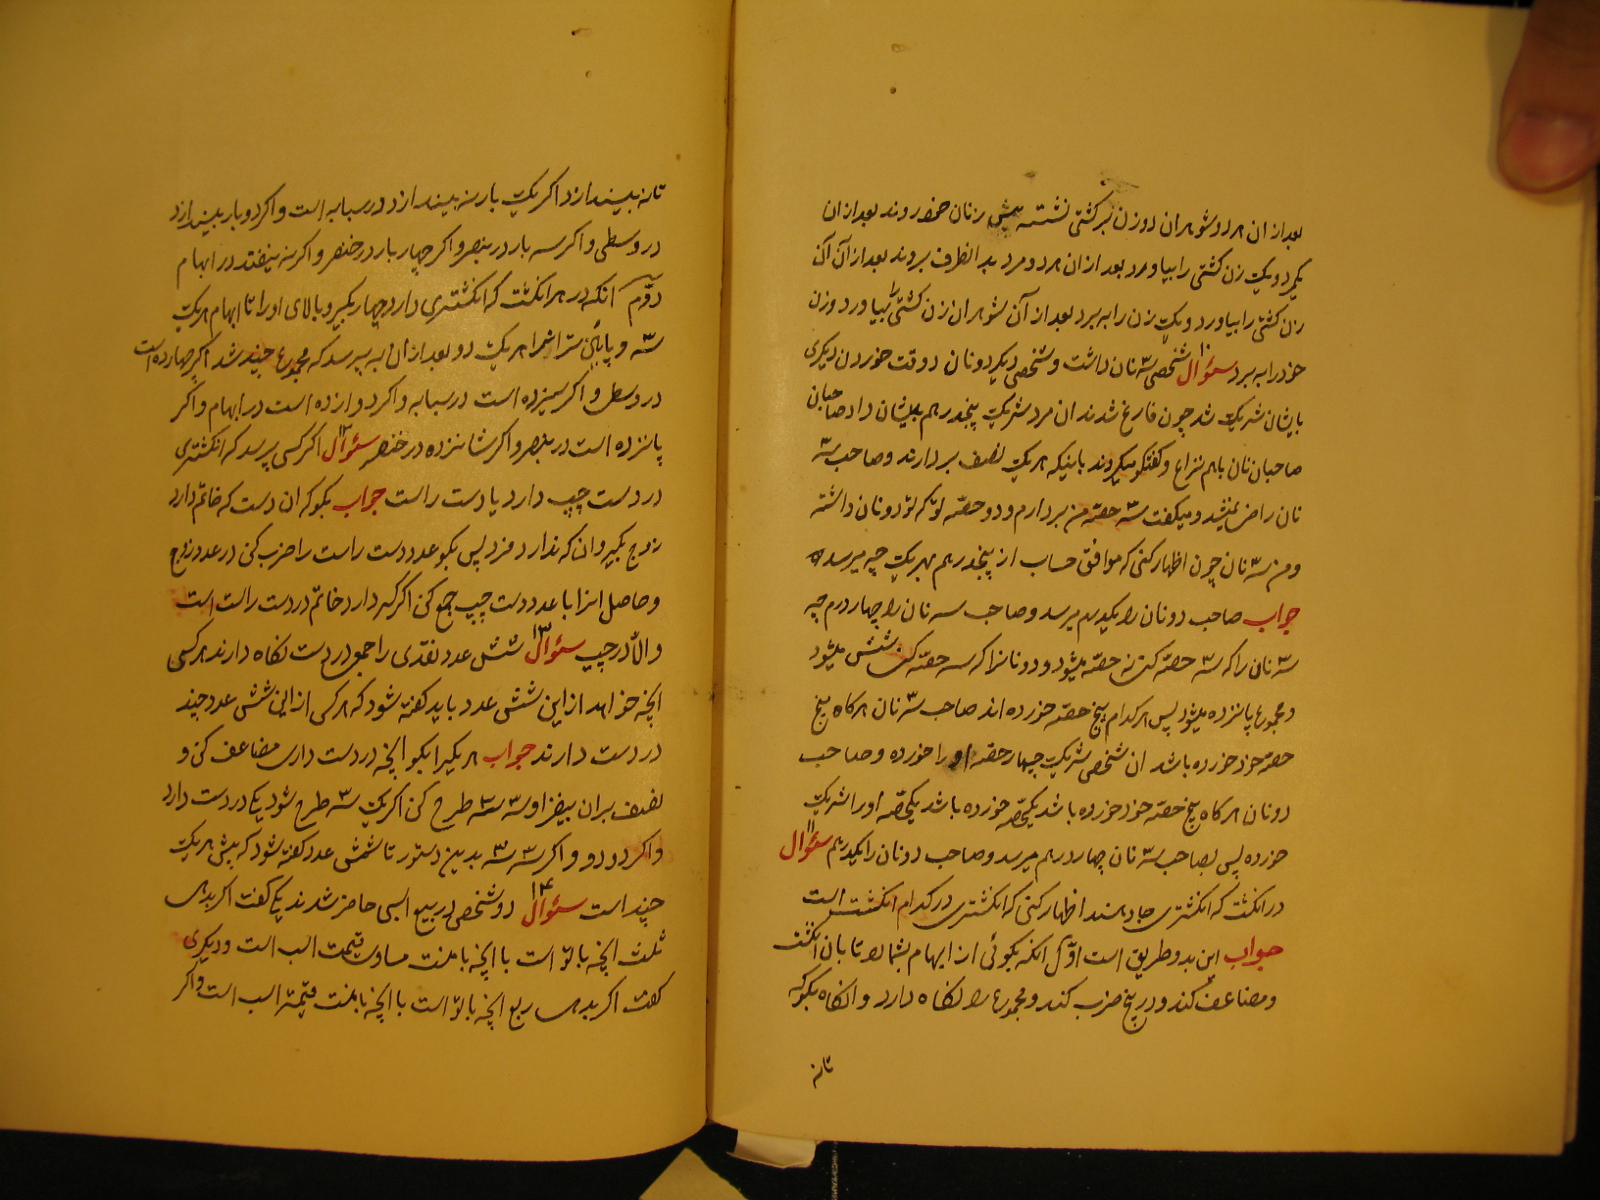 بعد از ان هر دو شوهران دو زن بر کشتی نشسته پیش زنان خود روند بعد از ان
یکمرد و یک زن کشتی را بیاورد بعد از ان هر دو مرد بد انطرف بروند بعد از آن آن
زن کشتی را بیاورد و یک زن را ببرد بعد از آن شوهران زن کشتی را بیاورد و زن
خود را ببرد سئوال ۱۰ شخصی سه نان داشت و شخصی دیگر دو نان در وقت خوردن دیگری
بایشان شریک شد چون فارغ شدند ان مرد شریک پنجدرهم بایشان داد صاحبان
صاحبان نان باهم نزاع و گفتگو میکردند باینکه هر یک نصف بردارند و صاحب سه
نان راضی نمیشد و میگفت سه حصه من بردارم و دو حصه تو که تو دو نان داشته
و من سه نان چون اظهار کنی که موافق حساب از پنجدرهم بهر یک چه میرسد
جواب صاحب دو نان را یکدرهم میرسد و صاحب سه نان را چهار درم چه
سه نان را که سه حصه کنی نه حصه میشود و دو نانرا که سه حصه کنی شش میشود
و مجموع پانزده میشود پس هر کدام پنج حصه خورده اند صاحب سه نان هر گاه پنج
حصه خود خورده باشد ان شخص شریک چهار حصه او را خورده و صاحب
دو نان هر گاه پنج حصه خود خورده باشد یکحصه خورده باشد یکحصه او را شریک
خورده پس بصاحب سه نان چهار درهم میرسد و صاحب دو نان را یکدرهم سئوال ۱۱
در انکشت که انکشتری جا دهند اظهار کنی که انکشتری در کدام انکشتش است
جواب این بدو طریق است اوّل انکه بگوئی از ابهام بشمارد تا بان انکشت
و مضاعف کند و در پنج ضرب کند و مجموع را نگاه دارد و انگاه بگو که
تا نه
تا نه بیندازد اکر یک بار نه بیندازد در سبابه است و اکر دو بار بیندازد
در وسطی و اکر سه بار در بنصر و اکر چهار بار در خنصر و اکر نه نیفتد در ابهام
دوّم آنکه در هر انکشت که انکشتری دارد چهار بگیر و بالای او را تا ابهام هر یک
سه و پائین تر از همرا هر یک دو بعد از ان به پرسد که مجموع چند شد اکر چهارده است
در وسطی و اکر سیزده است در سبابه و اکر دوازده است در ابهام و اکر
پانزده است در بنصر و اکر شانزده در خنصر سئوال ۱۲ اکر کسی پرسد که انکشتری
در دست چپ دارد یا دست راست جواب بگو که ان دست که خاتم دارد
زوج بگیر و ان که ندارد فرد پس بگو عدد دست راست را ضرب کنی در عدد زوج
و حاصل انرا با عدد دست چپ جمع کنی اکر کسر دارد خاتم در دست راست است
و الّا در چپ سئوال ۱۳ شش عدد نقدی را جمعی در دست نگاه دارند هر کسی
انچه خواهد از این شش عدد باید گفته شود که هر کس از این شش عدد چند
در دست دارند جواب هر یکیرا بگو انچه در دست داری مضاعف کنی و
نصف بران بیفزا و سه سه طرح کن اکر یک سه طرح شود یکی در دست دارد
و اکر دو دو و اکر سه سه بدین دستور تا شش عدد گفته شود که پیش هر یک
چند است سئوال ۱۴ دو شخص در بیع اسبی حاضر شدند یکی گفت اکر بدهی
ثلث انچه با تو است با انچه با منت مساوی قیمت اسب است و دیگری
گفت اکر بدهی ربع انچه با تو است با انچه با منت قیمة اسب است و اکر